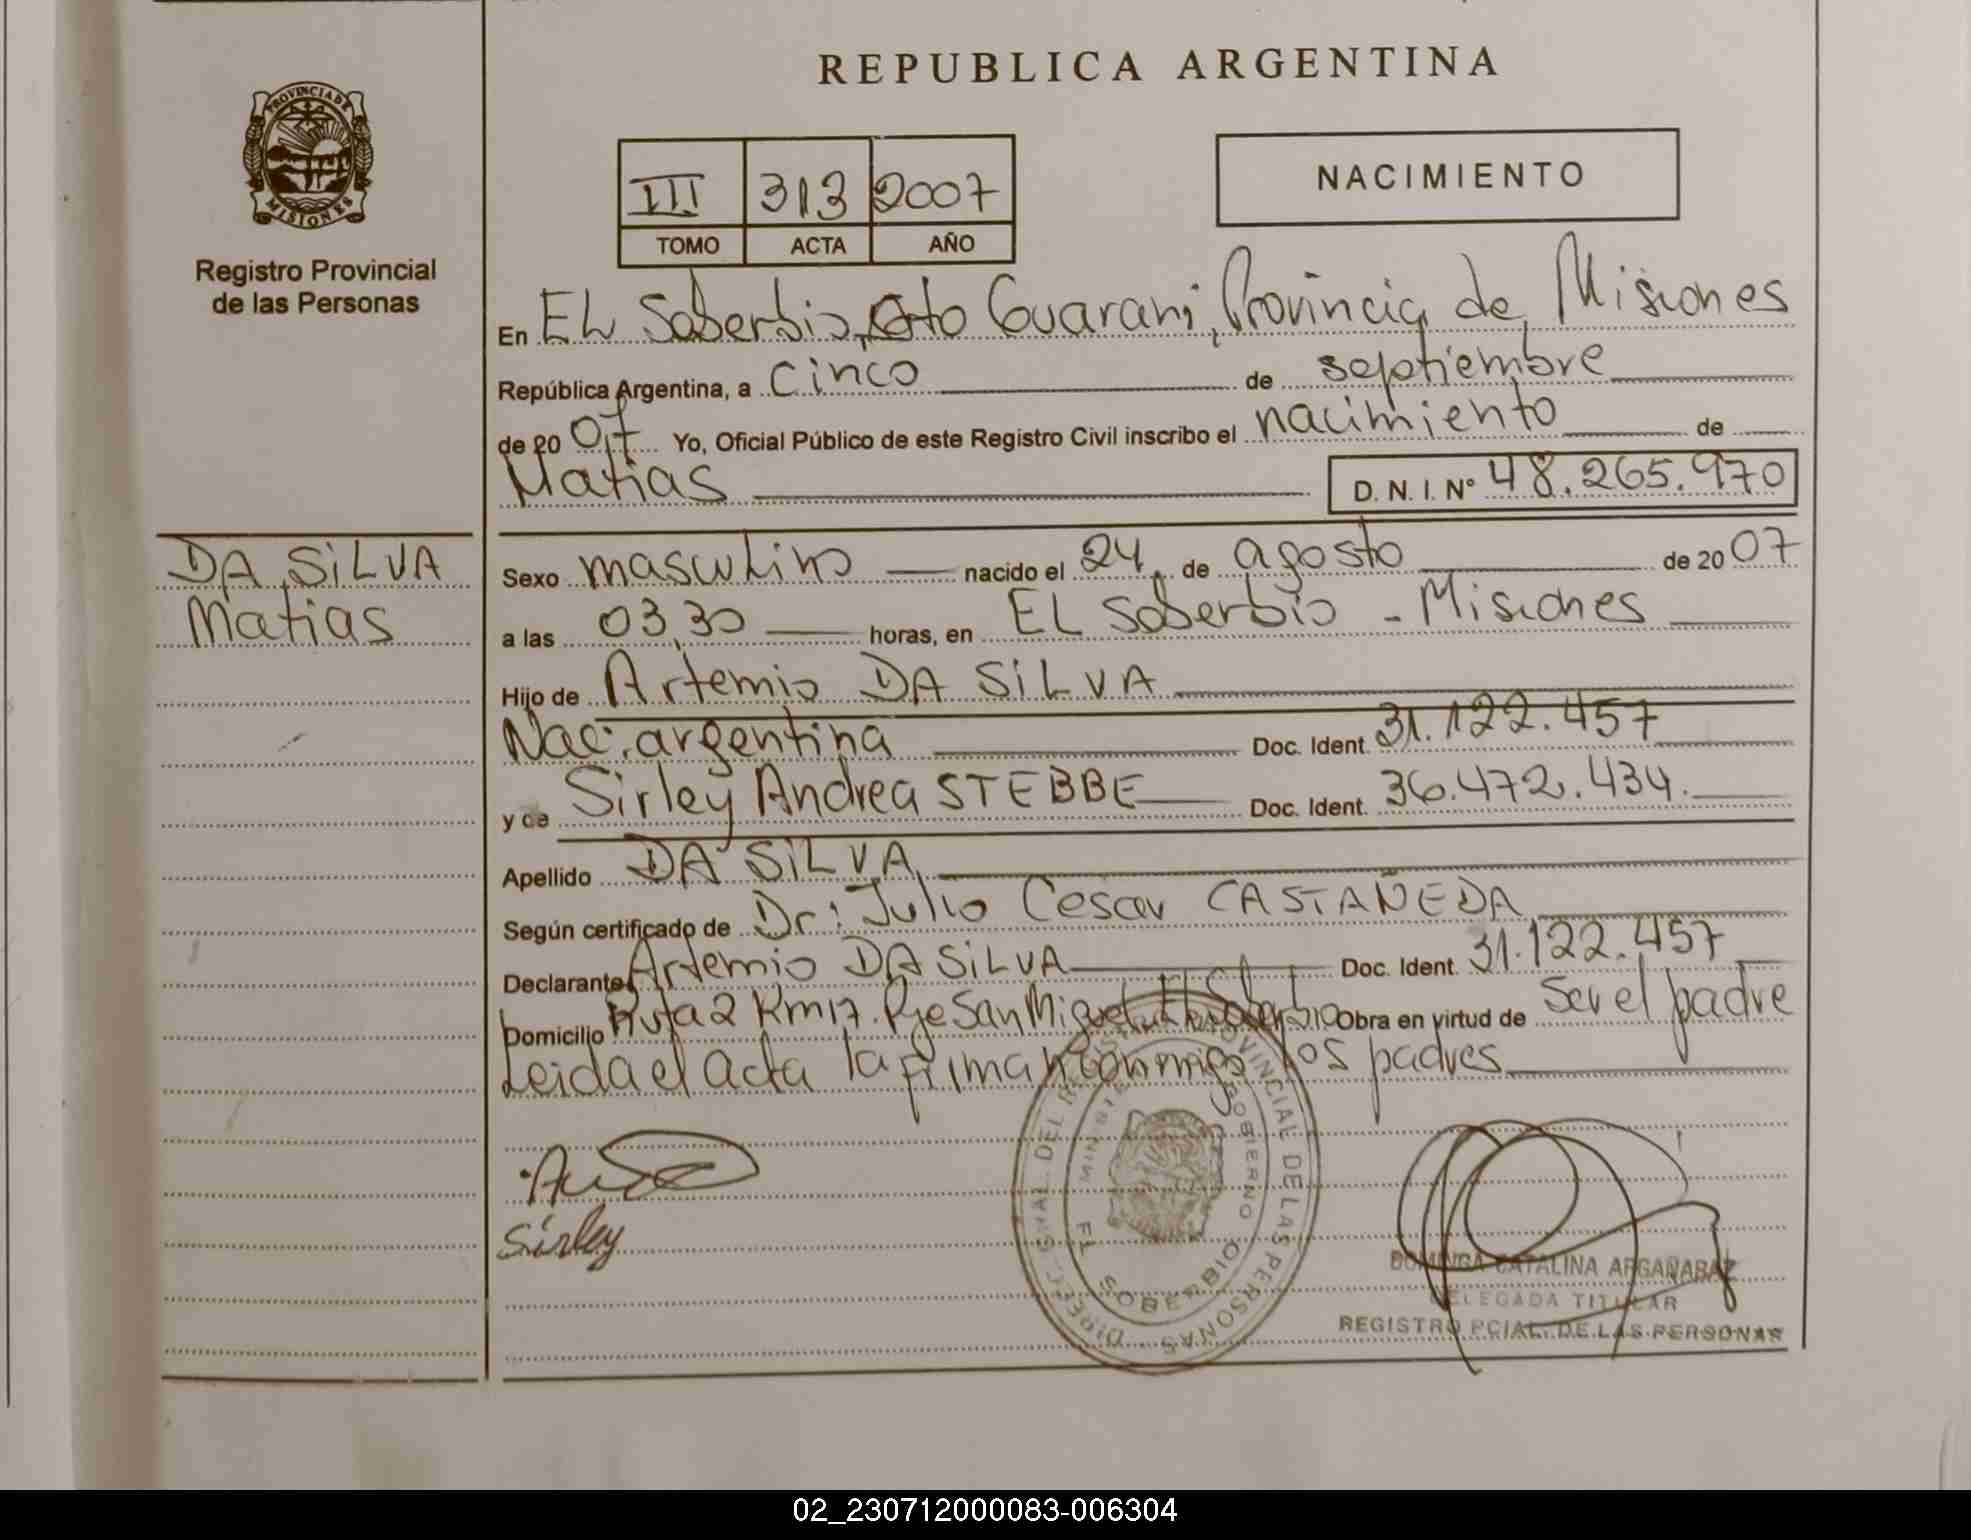 REPUBLICA ARGENTINA
PROVINCIA DE MISIONES
Registro Provincial
de las Personas
III 313 2007
TOMO ACTA AÑO
NACIMIENTO
En EL Soberbio, Gto Guarani, Provincia de Misiones
República Argentina, a cinco de septiembre
de 20 07 Yo, Oficial Público de este Registro Civil inscribo el nacimiento de
Matias D. N. I. Nº 48.265.970
DA SILVA
Matias
Sexo masculino nacido el 24 de agosto de 20 07
a las 03,30 horas, en EL Soberbio - Misiones
Hijo de Artemio DA SILVA
Nac. argentina Doc. Ident. 31.122.457
y de Sirley Andrea STEBBE Doc. Ident. 36.472.434.
Apellido DA SILVA
Según certificado de Dr: Julio Cesar CASTAÑEDA
Declarante Artemio DA SILVA Doc. Ident. 31.122.457
Domicilio Ruta 2 Km 17. Pje San Miguel El Soberbio Obra en virtud de Ser el padre
Leida el acta la firman conmigo los padres
Sirley
DIREC. GRAL. DEL REGISTRO PROVINCIAL DE LAS PERSONAS
MINISTERIO GOBIERNO
EL SOBERBIO
DOMINGA CATALINA ARGAÑARAZ
DELEGADA TITULAR
REGISTRO PCIAL. DE LAS PERSONAS
02_230712000083-006304